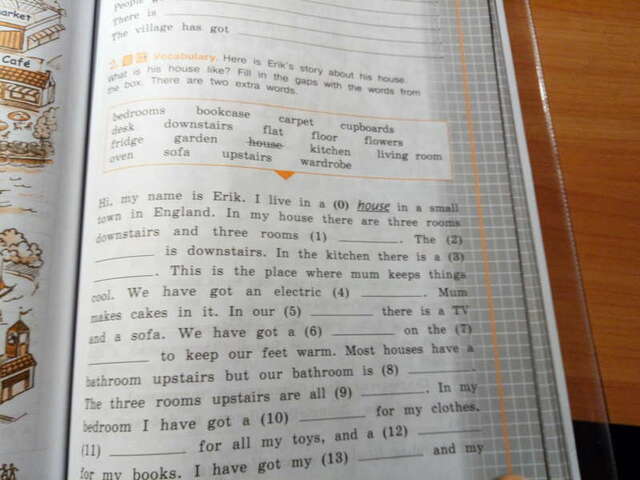 arket
Café
People w
There is
The village has got
2. Vocabulary. Here is Erik's story about his house.
What is his house like? Fill in the gaps with the words from
the box. There are two extra words.
bedrooms bookcase carpet cupboards
desk downstairs flat floor flowers
fridge garden house kitchen living room
oven sofa upstairs wardrobe
Hi, my name is Erik. I live in a (0) house in a small
town in England. In my house there are three rooms
downstairs and three rooms (1) ________. The (2)
________ is downstairs. In the kitchen there is a (3)
________. This is the place where mum keeps things
cool. We have got an electric (4) ________. Mum
makes cakes in it. In our (5) ________ there is a TV
and a sofa. We have got a (6) ________ on the (7)
________ to keep our feet warm. Most houses have a
bathroom upstairs but our bathroom is (8) ________.
The three rooms upstairs are all (9) ________. In my
bedroom I have got a (10) ________ for my clothes,
(11) ________ for all my toys, and a (12) ________
for my books. I have got my (13) ________ and my